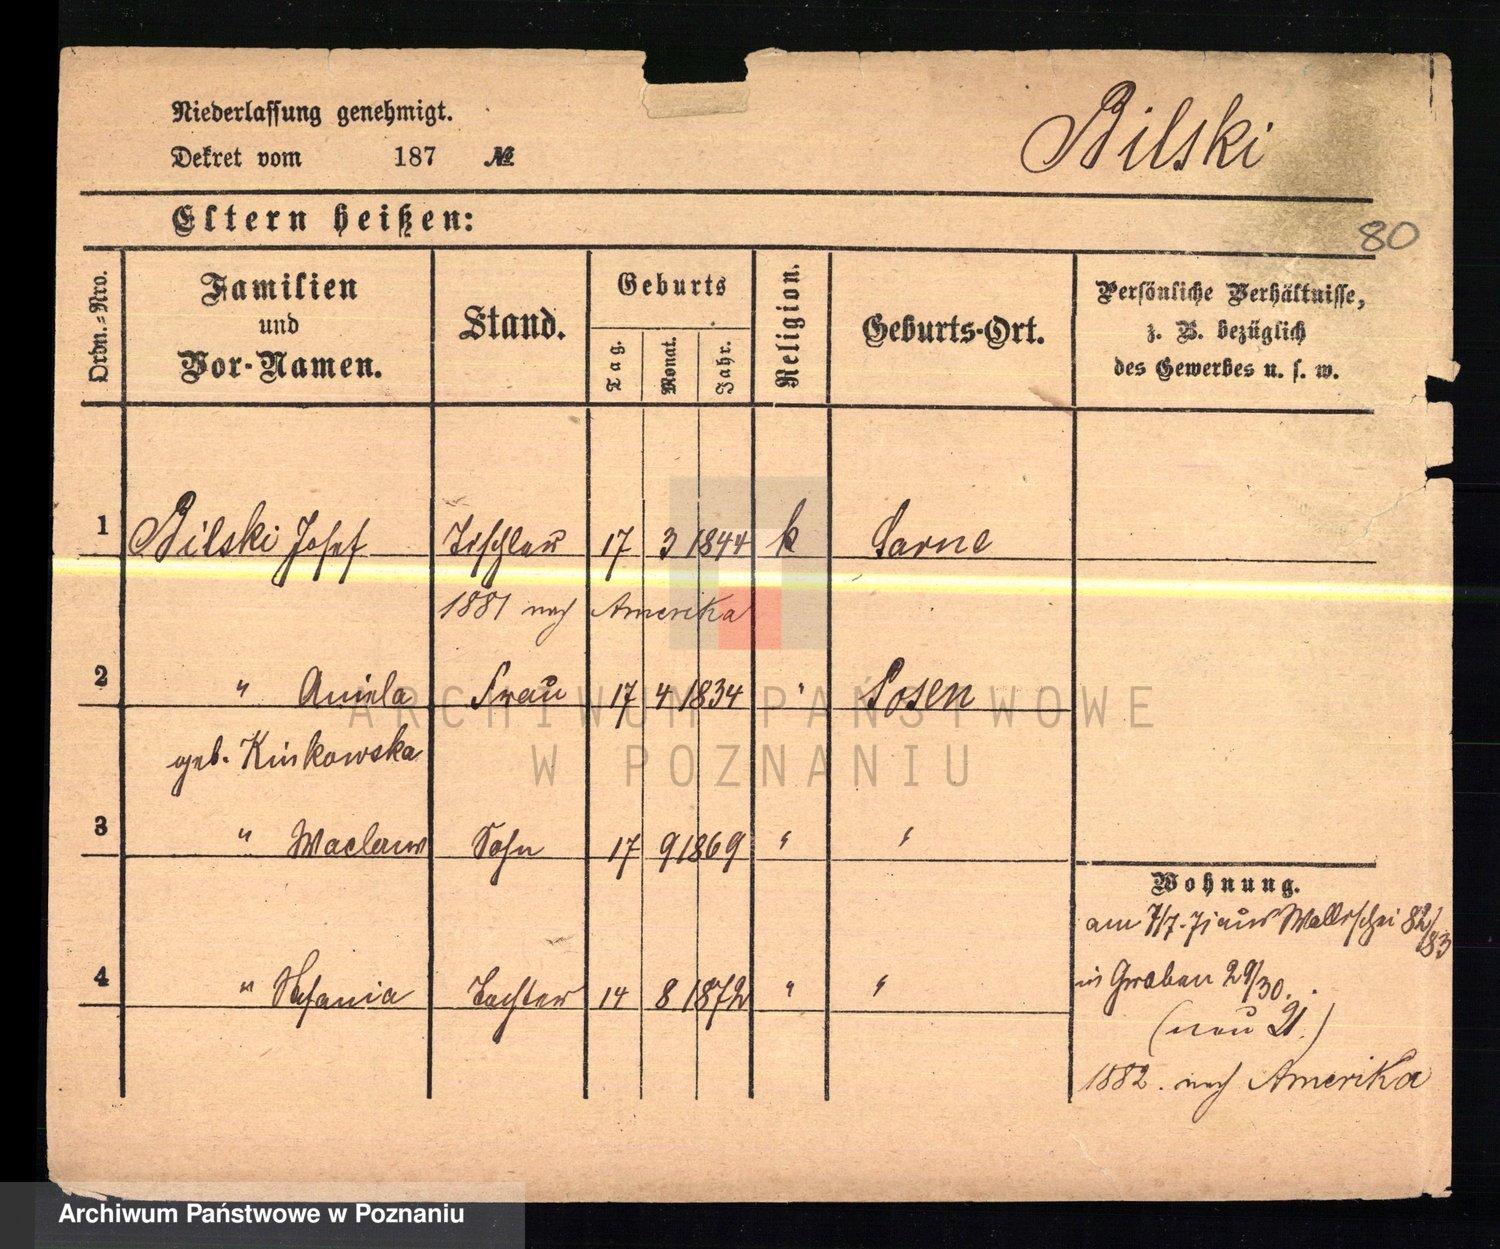 Niederlassung genehmigt.
Dekret vom 187 №
Bilski
Eltern heißen:
80
Ordn.-Nro.
Familien und Vor-Namen.
Stand.
Geburts
Tag.
Monat.
Jahr.
Religion.
Geburts-Ort.
Persönliche Verhältnisse,
z. B. bezüglich
des Gewerbes u. s. w.
1 Bilski Josef Tischler 17 3 1844 k Sarne
1881 nach Amerika
2 " Aniela Frau 17 4 1834 " Posen
geb. Kinkowska
3 " Waclaw Sohn 17 9 1869 " "
4 " Stefania Tochter 14 8 1872 " "
Wohnung.
am 7/7. 71 aus Wallischei 82/83
in Graben 29/30.
(neu 21.)
1882. nach Amerika
ARCHIWUM PAŃSTWOWE
W POZNANIU
Archiwum Państwowe w Poznaniu